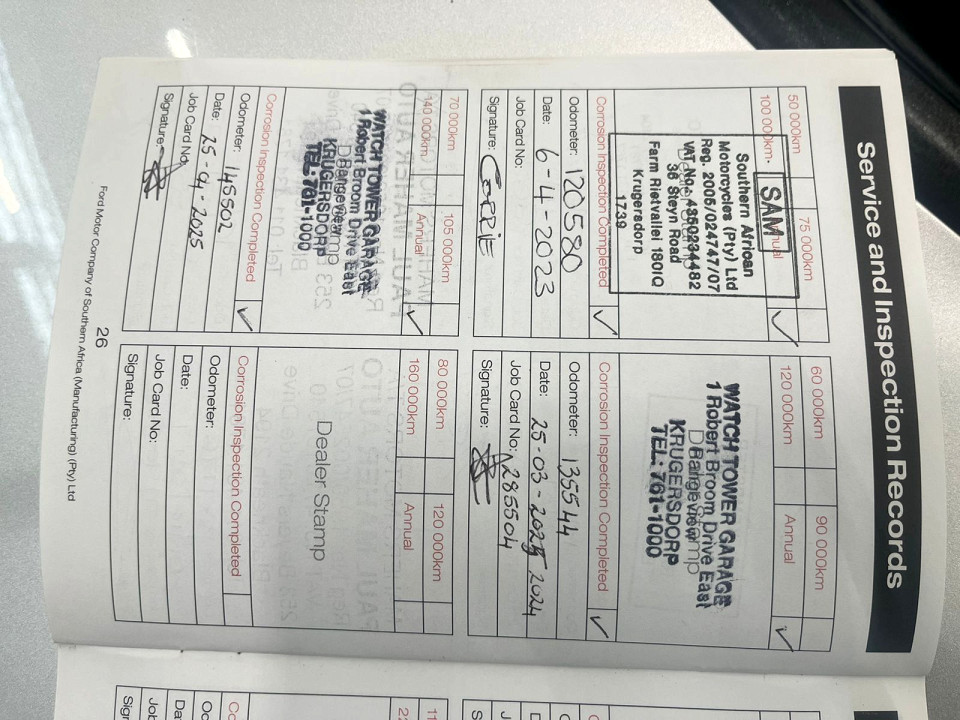 Service and Inspection Records
50 000km
75 000km
100 000km
Annual
✓
SAM
Southern African
Motorcycles (Pty) Ltd
Reg. 2005/024747/07
VAT No. 4350234482
36 Steyn Road
Farm Rietvallei 180IQ
Krugersdorp
1739
Corrosion Inspection Completed ✓
Odometer: 120580
Date: 6-4-2023
Job Card No:
Signature:
60 000km
90 000km
120 000km
Annual
✓
WATCH TOWER GARAGE
1 Robert Broom Drive East
Rangeview
KRUGERSDORP
TEL: 761-1000
Corrosion Inspection Completed ✓
Odometer: 135544
Date: 25-03-2025 2024
Job Card No: 285504
Signature:
70 000km
105 000km
140 000km
Annual
✓
WATCH TOWER GARAGE
1 Robert Broom Drive East
Rangeview
KRUGERSDORP
TEL: 761-1000
Corrosion Inspection Completed ✓
Odometer: 145502
Date: 25-04-2025
Job Card No:
Signature:
80 000km
120 000km
160 000km
Annual
Dealer Stamp
Corrosion Inspection Completed
Odometer:
Date:
Job Card No:
Signature:
26
Ford Motor Company of Southern Africa (Manufacturing) (Pty) Ltd